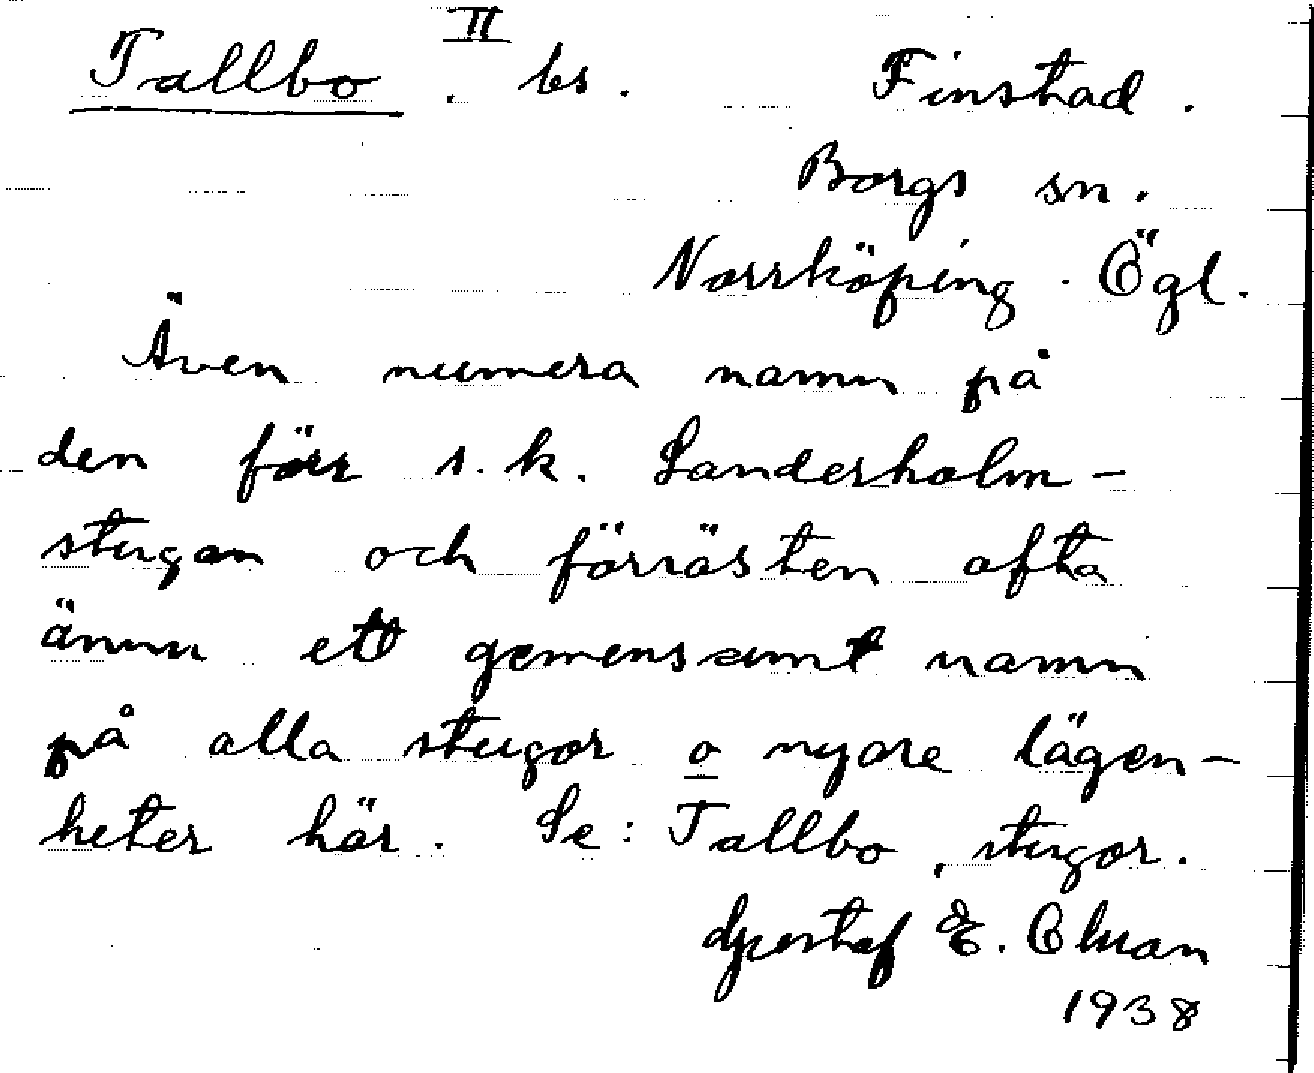 Tallbo II. bs. Finstad.
Borgs sn.
Norrköping. Ögl.
Även numera namn på
den förr s.k. Sanderholm-
stugan och förrästen ofta
ännu ett gemensamt namn
på alla stugor o nyare lägen-
heter här. Se: Tallbo, stugor.
Gustaf E.
1938